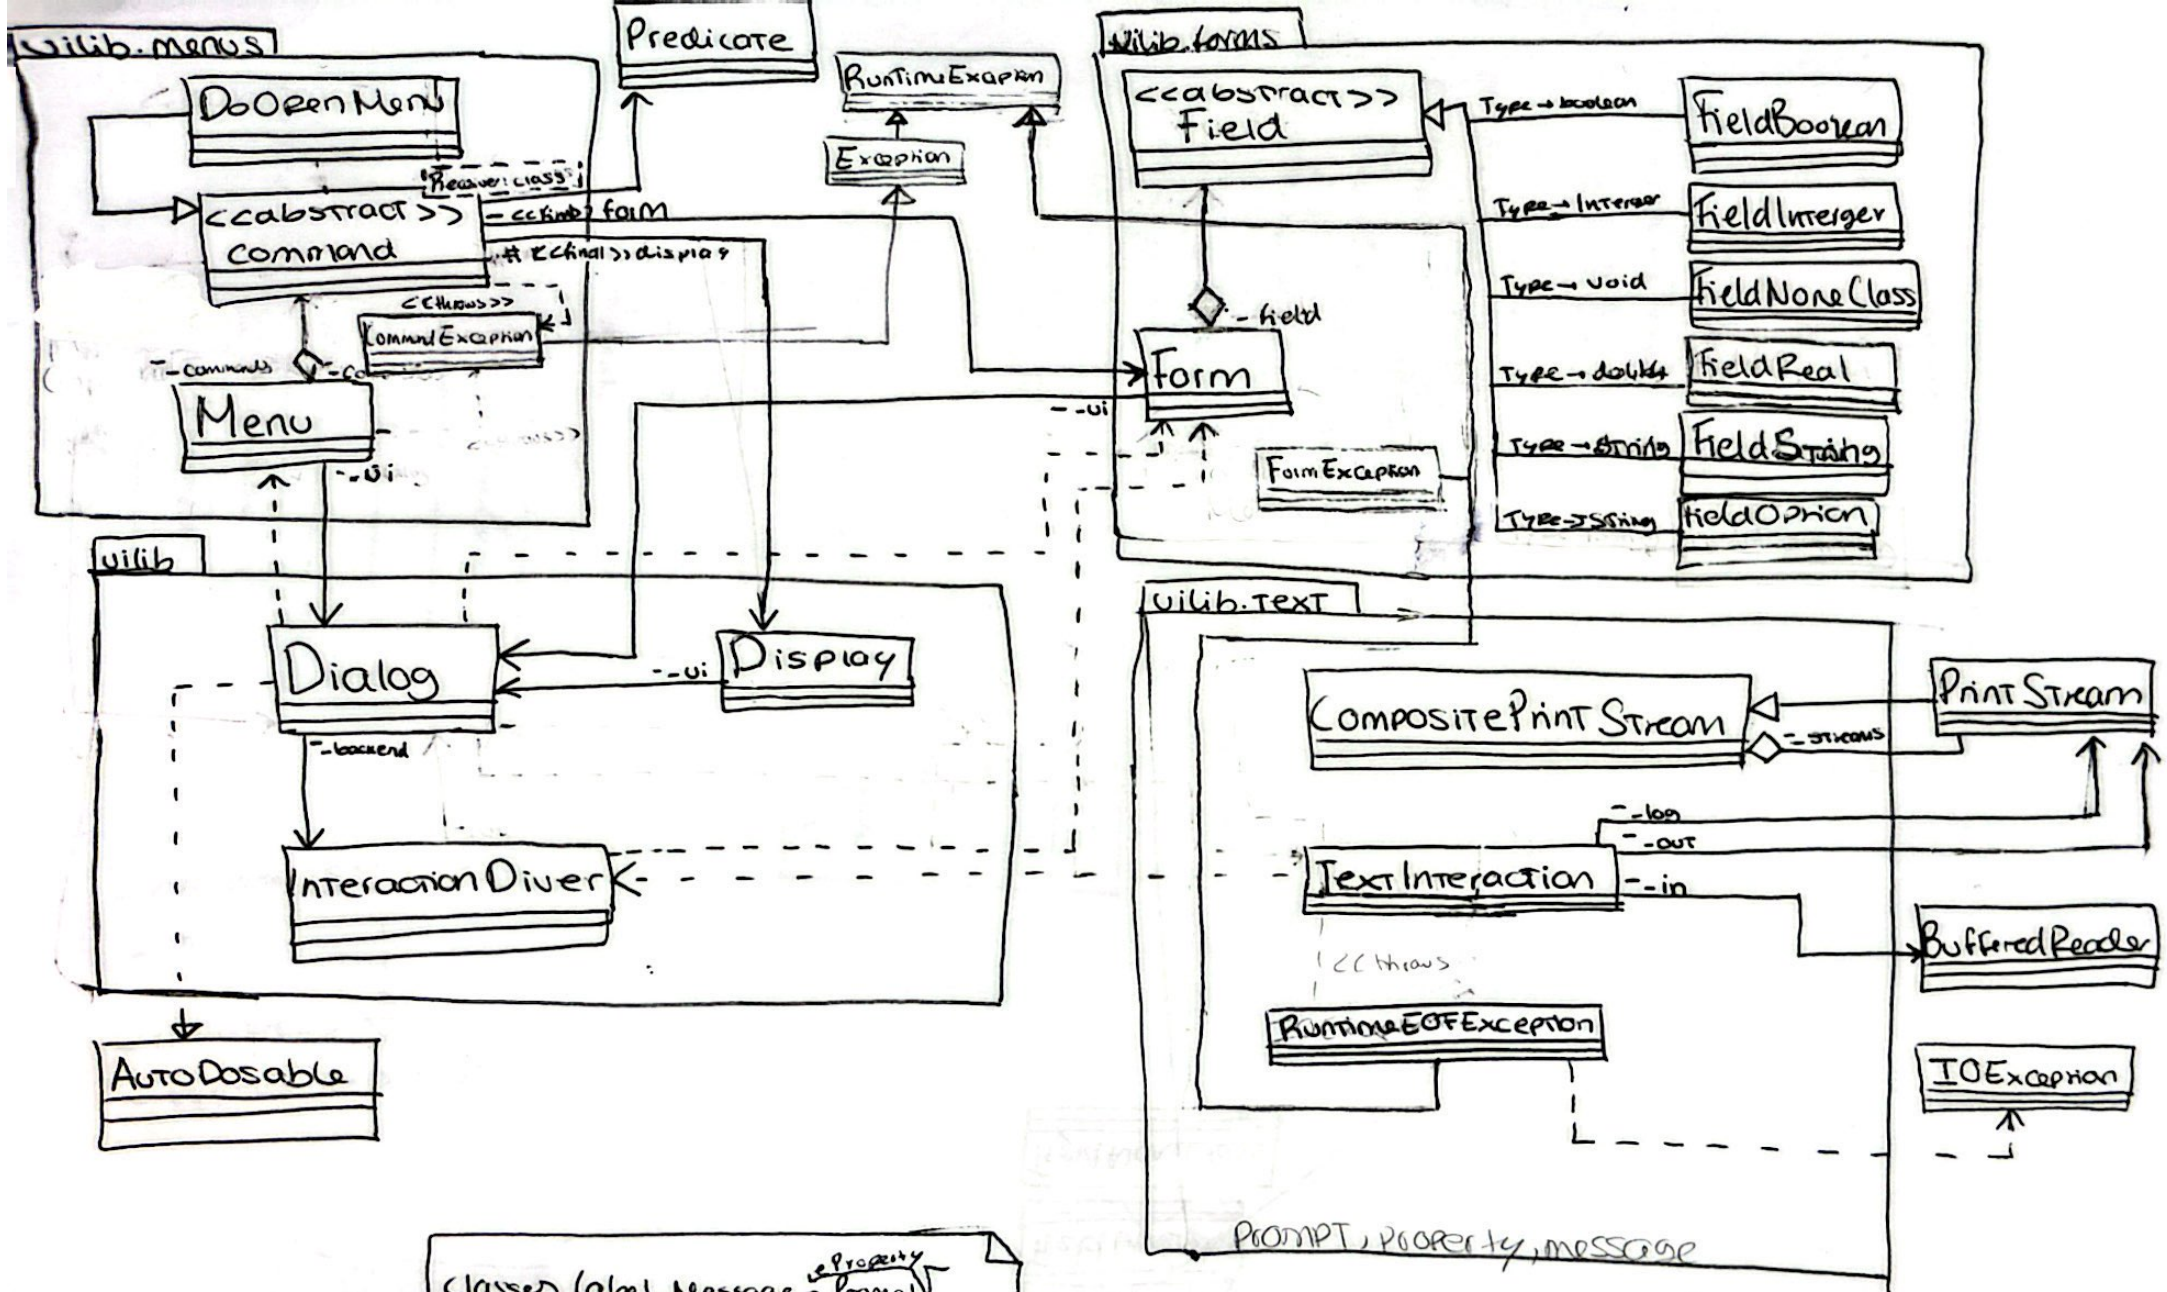 uilib.menus
DoOpenMenu
<<abstract>>
command
- <<final>> form
# <<final>> display
<<throws>>
CommandException
- - commands
Menu
- - ui
Predicate
RunTimeExcepion
Exception
uilib.forms
<<abstract>>
Field
- Field
Form
- - ui
FormException
Type → boolean
FieldBoolean
Type → Interger
FieldInterger
Type → void
FieldNoneClass
Type → double
FieldReal
Type → String
FieldString
Type → String
FieldOption
uilib
Dialog
- - backend
- - ui
Display
InteractionDiver
AutoDosable
uilib.Text
CompositePrintStream
- - streams
PrintStream
- - log
- - out
TextInteraction
- - in
BufferedReader
<<throws
RuntimeEOFException
IOException
Prompt, property, message
Classes label, Message
eProperty